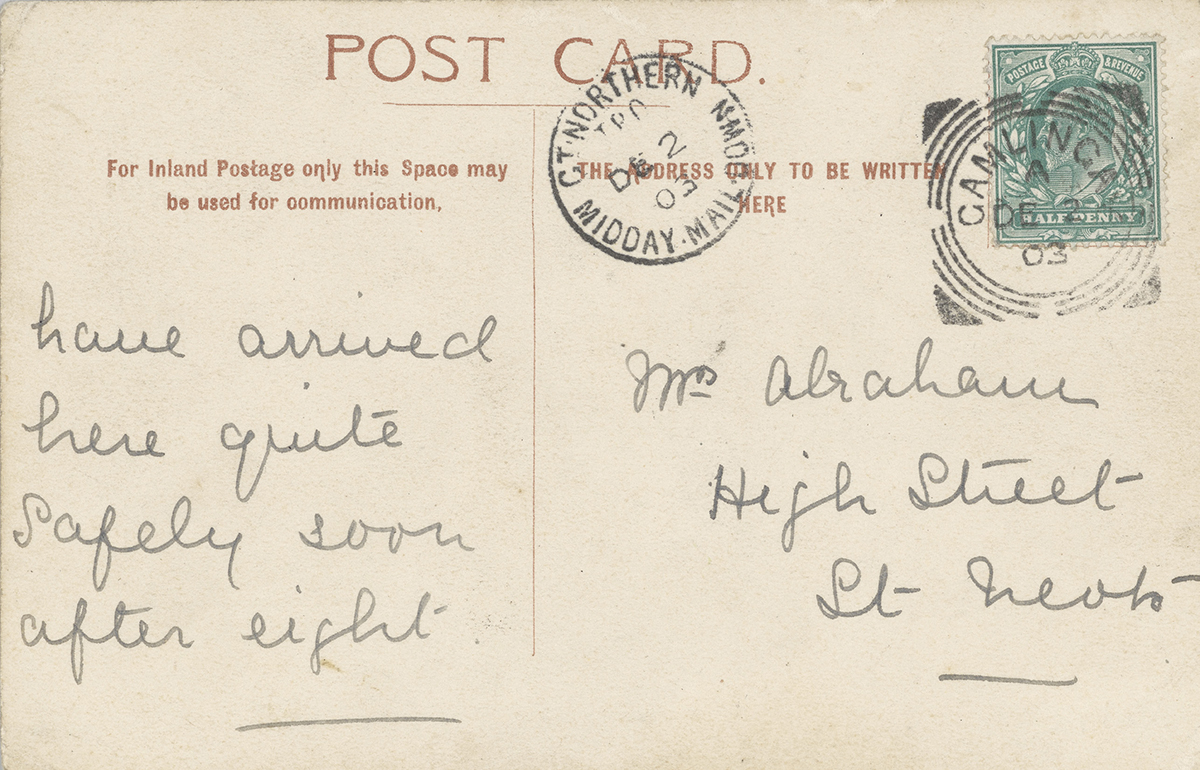 POST CARD.
For Inland Postage only this Space may
be used for communication,
THE ADDRESS ONLY TO BE WRITTEN
HERE
GT. NORTHERN
TPO
DE 2
03
MIDDAY. MAIL. DOWN
POSTAGE & REVENUE
HALFPENNY
CAMLINGA
A
DE 2
03
have arrived
here quite
Safely soon
after eight.
Mrs Abraham
High Street
St Neots